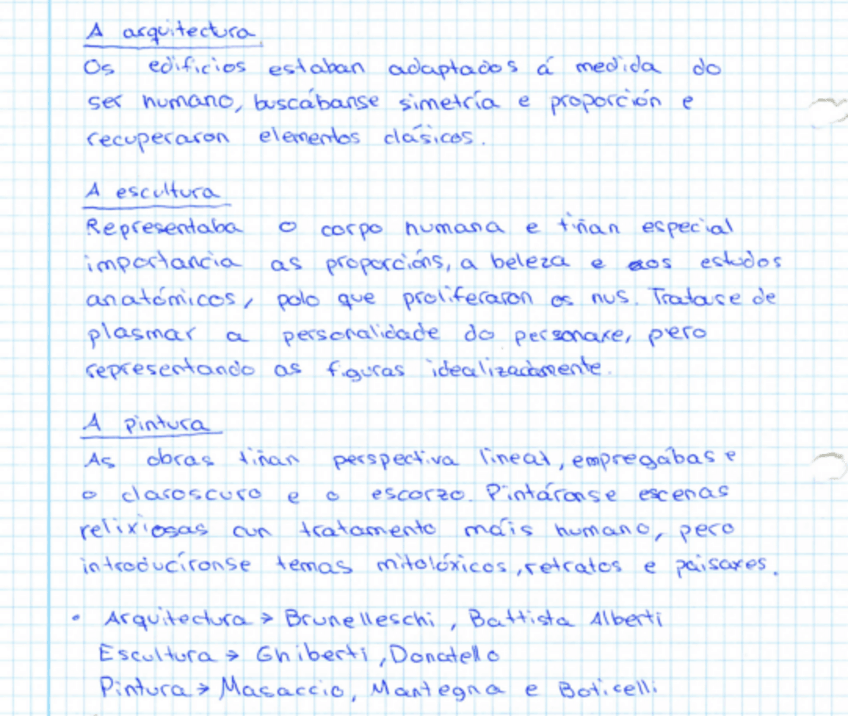 A arquitectura
Os edificios estaban adaptados á medida do
ser humano, buscábanse simetría e proporción e
recuperaron elementos clásicos.
A escultura
Representaba o corpo humana e tiñan especial
importancia as proporcións, a beleza e aos estudos
anatómicos, polo que proliferaron os nus. Tratase de
plasmar a personalidade do personaxe, pero
representando as figuras idealizadamente.
A pintura
As obras tiñan perspectiva lineal, empregábase
o claroscuro e o escorzo. Pintáronse escenas
relixiosas cun tratamento máis humano, pero
introducíronse temas mitolóxicos, retratos e paisaxes.
• Arquitectura > Brunelleschi, Battista Alberti
Escultura > Ghiberti, Donatello
Pintura > Masaccio, Mantegna e Boticelli